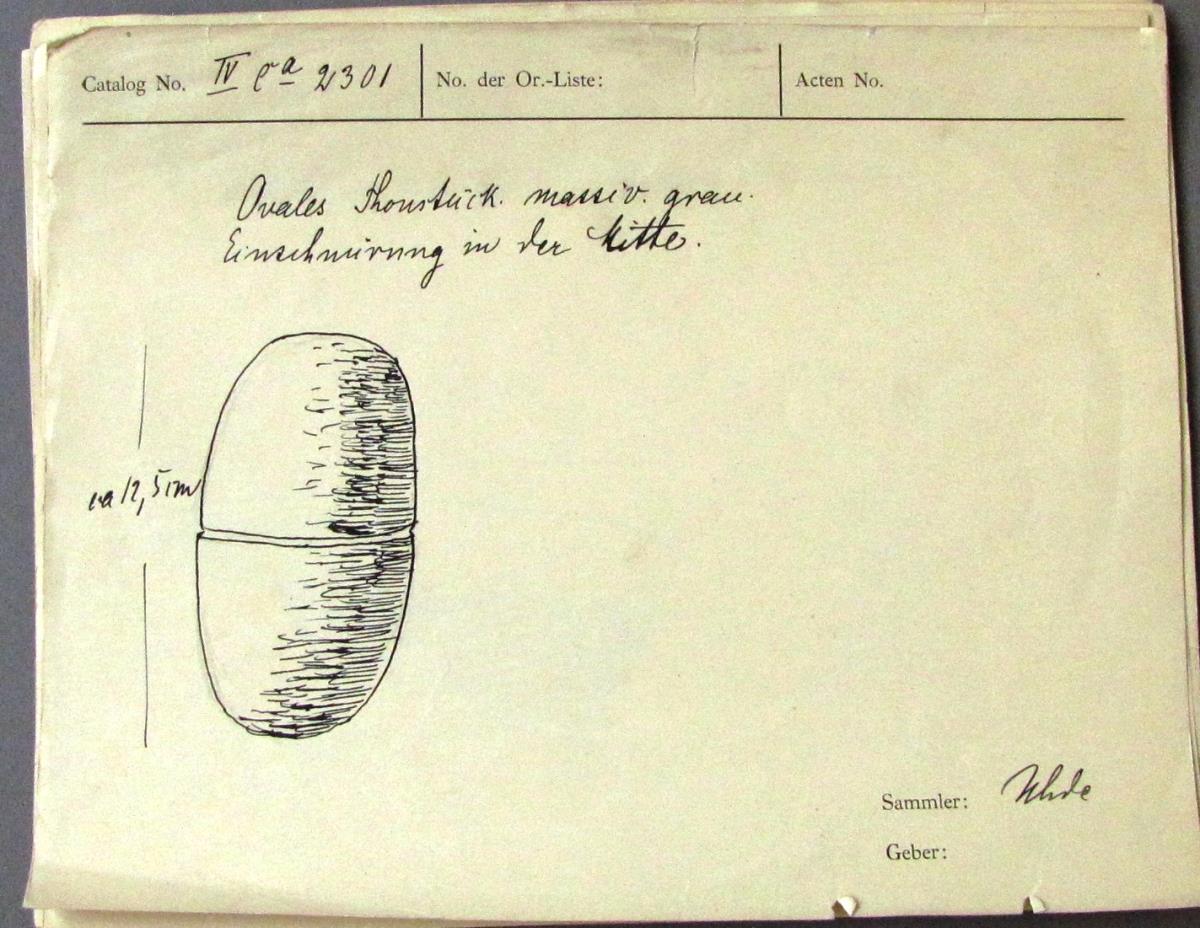 Catalog No. IV Ca 2301
No. der Or.-Liste:
Acten No.
Ovales Thonstück. massiv. grau.
Einschnürung in der Mitte.
ca 12,5 cm
Sammler: Uhde
Geber: